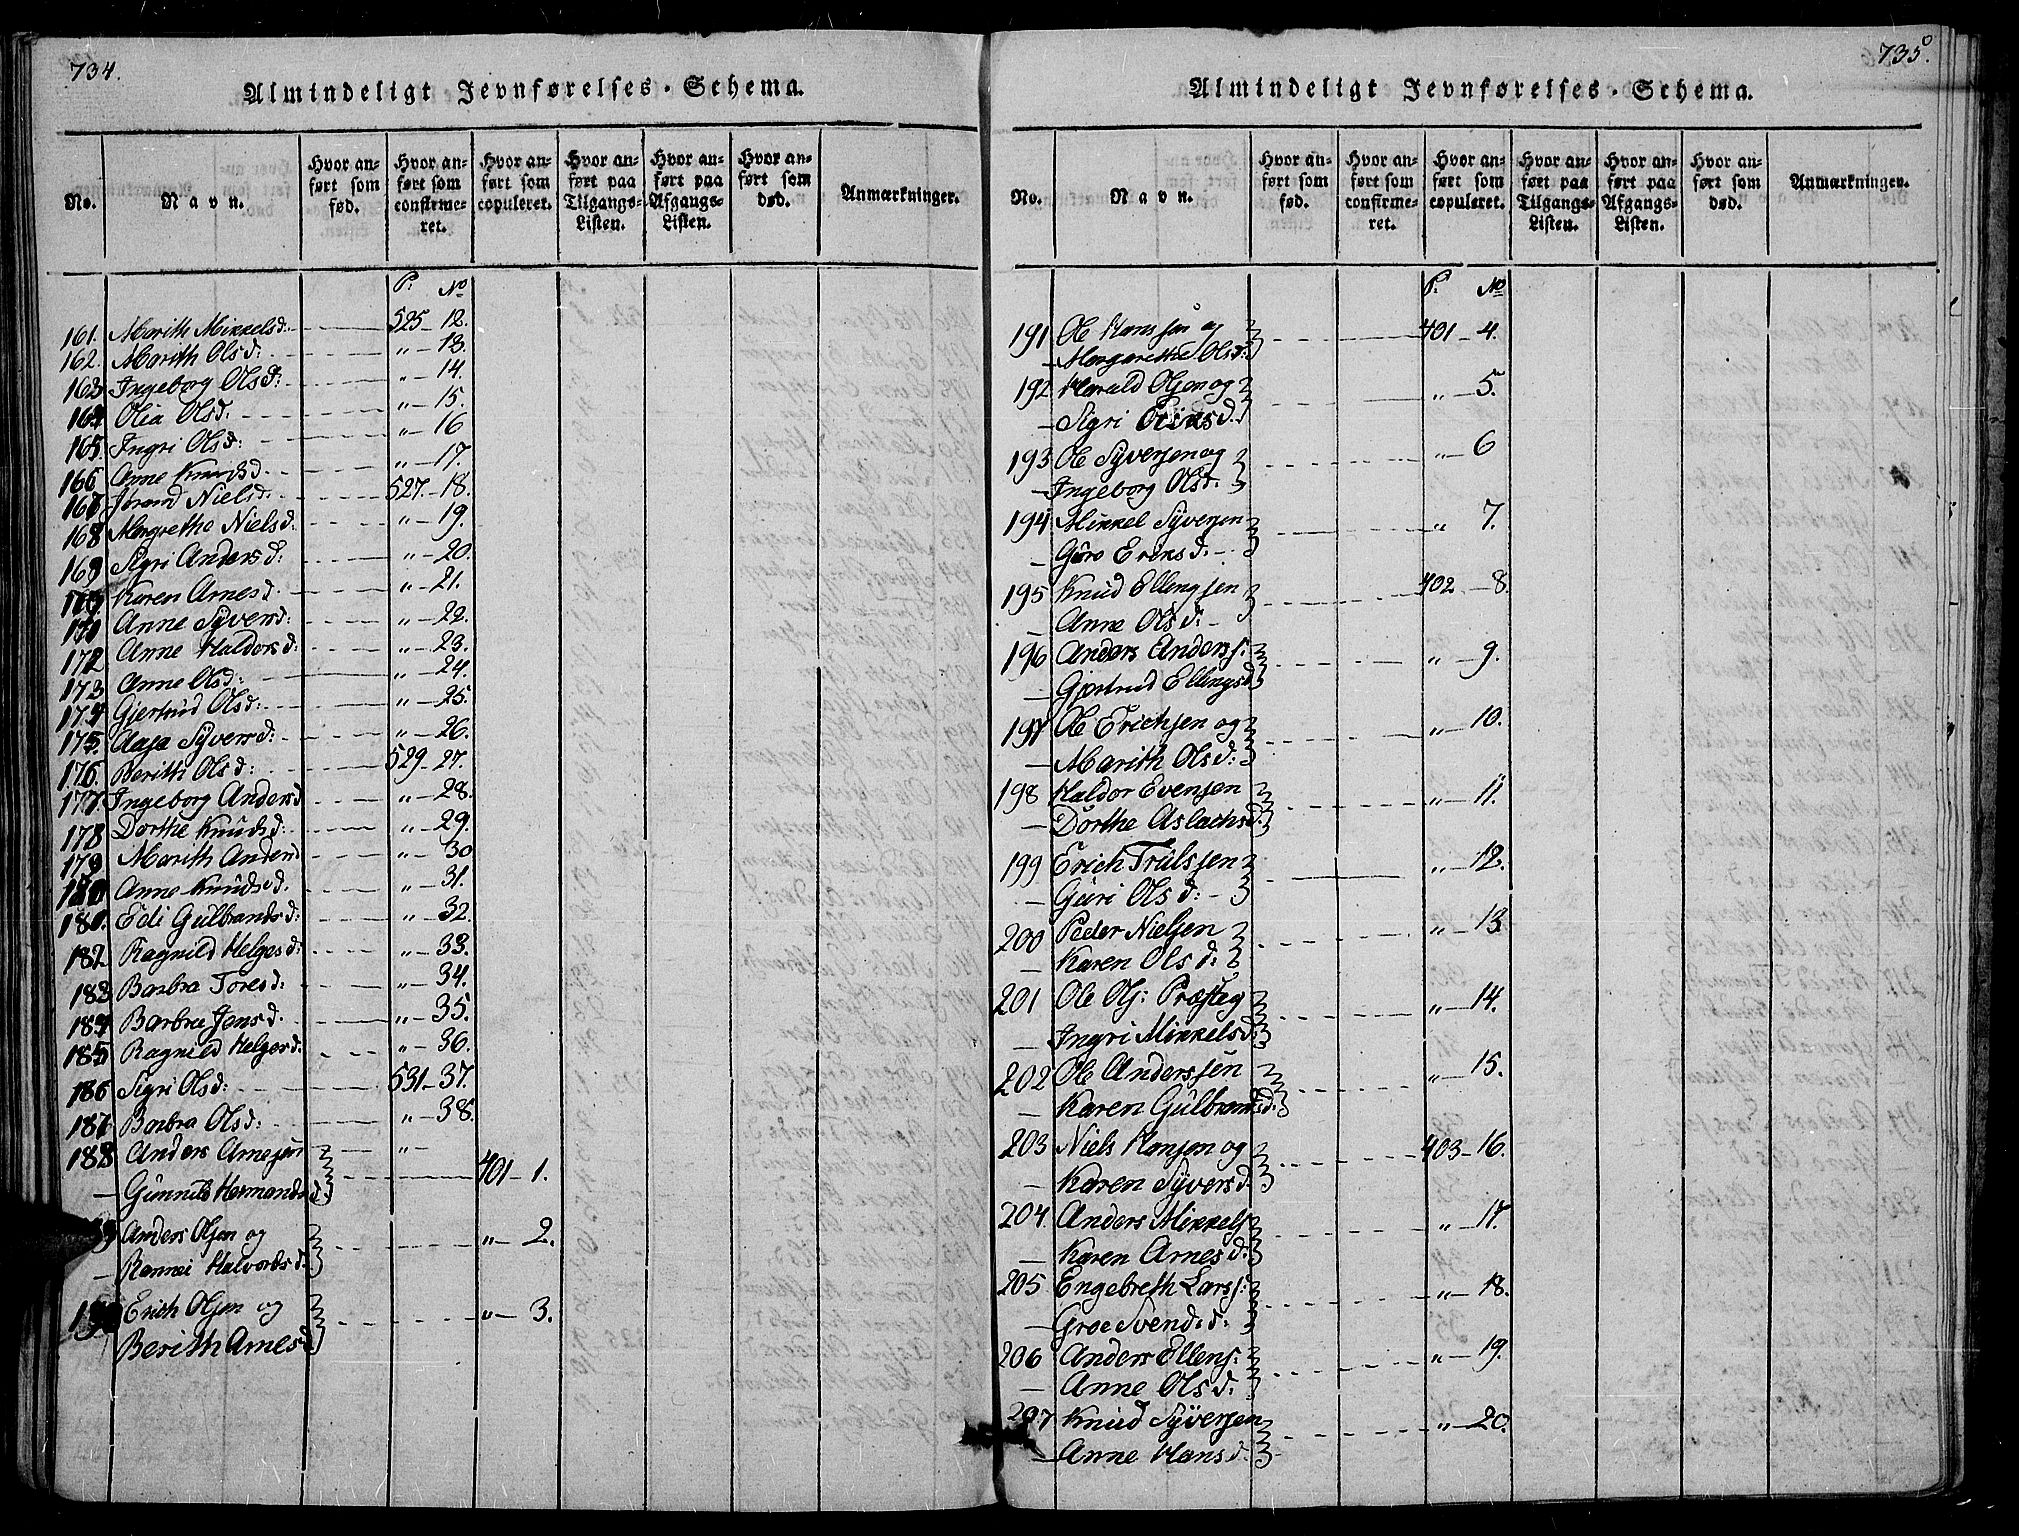 734.
Almindeligt Jevnførelses-Schema.
No.
Navn.
Hvor anført som fød.
Hvor anført som confirmeret.
Hvor anført som copuleret.
Hvor anført paa Tilgangs-Listen.
Hvor anført paa Afgangs-Listen.
Hvor anført som død.
Anmærkninger.
P: No
161. Marith Mikkelsd: 525-12.
162. Marith Olsd: „-13.
163 Ingeborg Olsd: „-14.
164 Olia Olsd. „-15.
165. Ingri Olsd: „-16
166 Anne Knudsd. „-17.
167 Jørand Nielsd. 527.-18.
168 Margrethe Nielsd: „-19.
169 Sigri Andersd: „-20.
170 Karen Arnesd. „-21.
171 Anne Syversd: „-22.
172 Anne Haldorsd: „-23.
173 Anne Olsd: „-24.
174 Gjertrud Olsd: „-25.
175. Aase Syversd: „-26.
176. Berith Olsd: 529-27.
177. Ingeborg Andersd „-28.
178 Dorthe Knudsd: „-29.
179 Marith Andersd „-30
180 Anne Knudsd. „-31.
181. Edi Gulbrandsd: „-32.
182 Ragnild Helgesd: „-33.
183 Barbra Toresd: „-34.
184 Barbra Jensd. „-35.
185 Ragnild Helgesd: „-36.
186 Sigri Olsd: 531-37.
187 Barbra Olsd: „-38.
188 Anders Arnesen „-
— Gunnild Hermandsd. 401-1.
Anders Olsen og
— Rannei Halvordsd. „-2.
190 Erich Olsen og
Berith Arnesd „-3.
735.
Almindeligt Jevnførelses-Schema.
No.
Navn.
Hvor anført som fød.
Hvor anført som confirmeret.
Hvor anført som copuleret.
Hvor anført paa Tilgangs-Listen.
Hvor anført paa Afgangs-Listen.
Hvor anført som død.
Anmærkninger.
P. No
191 Ole Hansen og 401-4.
— Margarethe Olsd:
192 Harald Olsen og „-5.
— Sigri Eriksd.
193 Ole Syversen og „-6
— Ingeborg Olsd.
194 Mikkel Syversen „ 7.
— Guro Eriksd.
195 Knud Ellengsen 402-8.
— Anne Olsd:
196 Anders Anderss: „-9.
— Gjertrud Ellingsd.
197 Ole Erichsen og „-10.
— Marith Olsd:
198 Haldor Evensen „-11.
— Dorthe Aslachsd.
199 Erich Trulssen „-12.
— Guri Olsd:
200 Peder Nielsen „-13
— Karen Olsd:
201 Ole Ols: Præsteg „-14.
— Ingri Mikkelsd.
202 Ole Anderssen „-15.
— Karen Gulbrandsd.
203 Niels Hansen og 403-16.
— Karen Syversd.
204. Anders Mikkels „-17.
— Karen Arnesd.
205 Engebreth Larss: „-18.
— Groe Svendsd:
206 Anders Ellens: „-19.
— Anne Olsd:
207 Knud Syversen „-20.
— Anne Hansd: